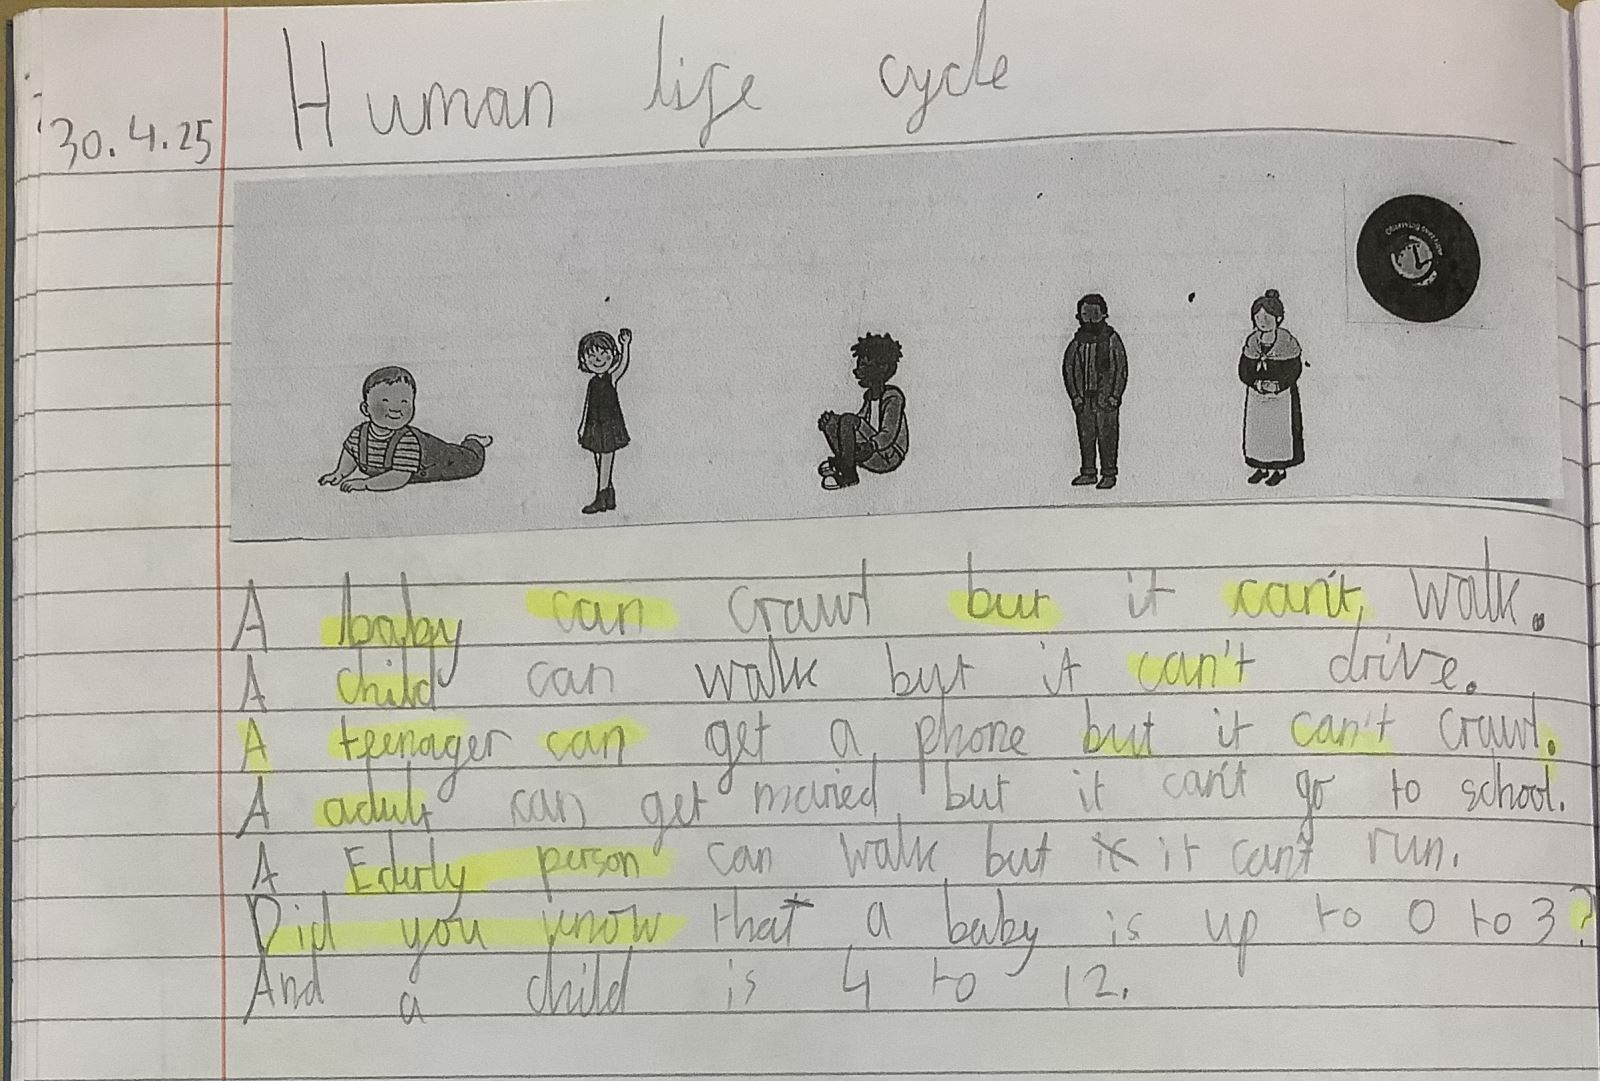 Human life cycle
30.4.25
Observing over time
A baby can crawl but it can't walk.
A child can walk but it can't drive.
A teenager can get a phone but it can't crawl.
A adult can get maried but it can't go to school.
A Ederly person can walk but it can't run.
Did you know that a baby is up to 0 to 3?
And a child is 4 to 12.